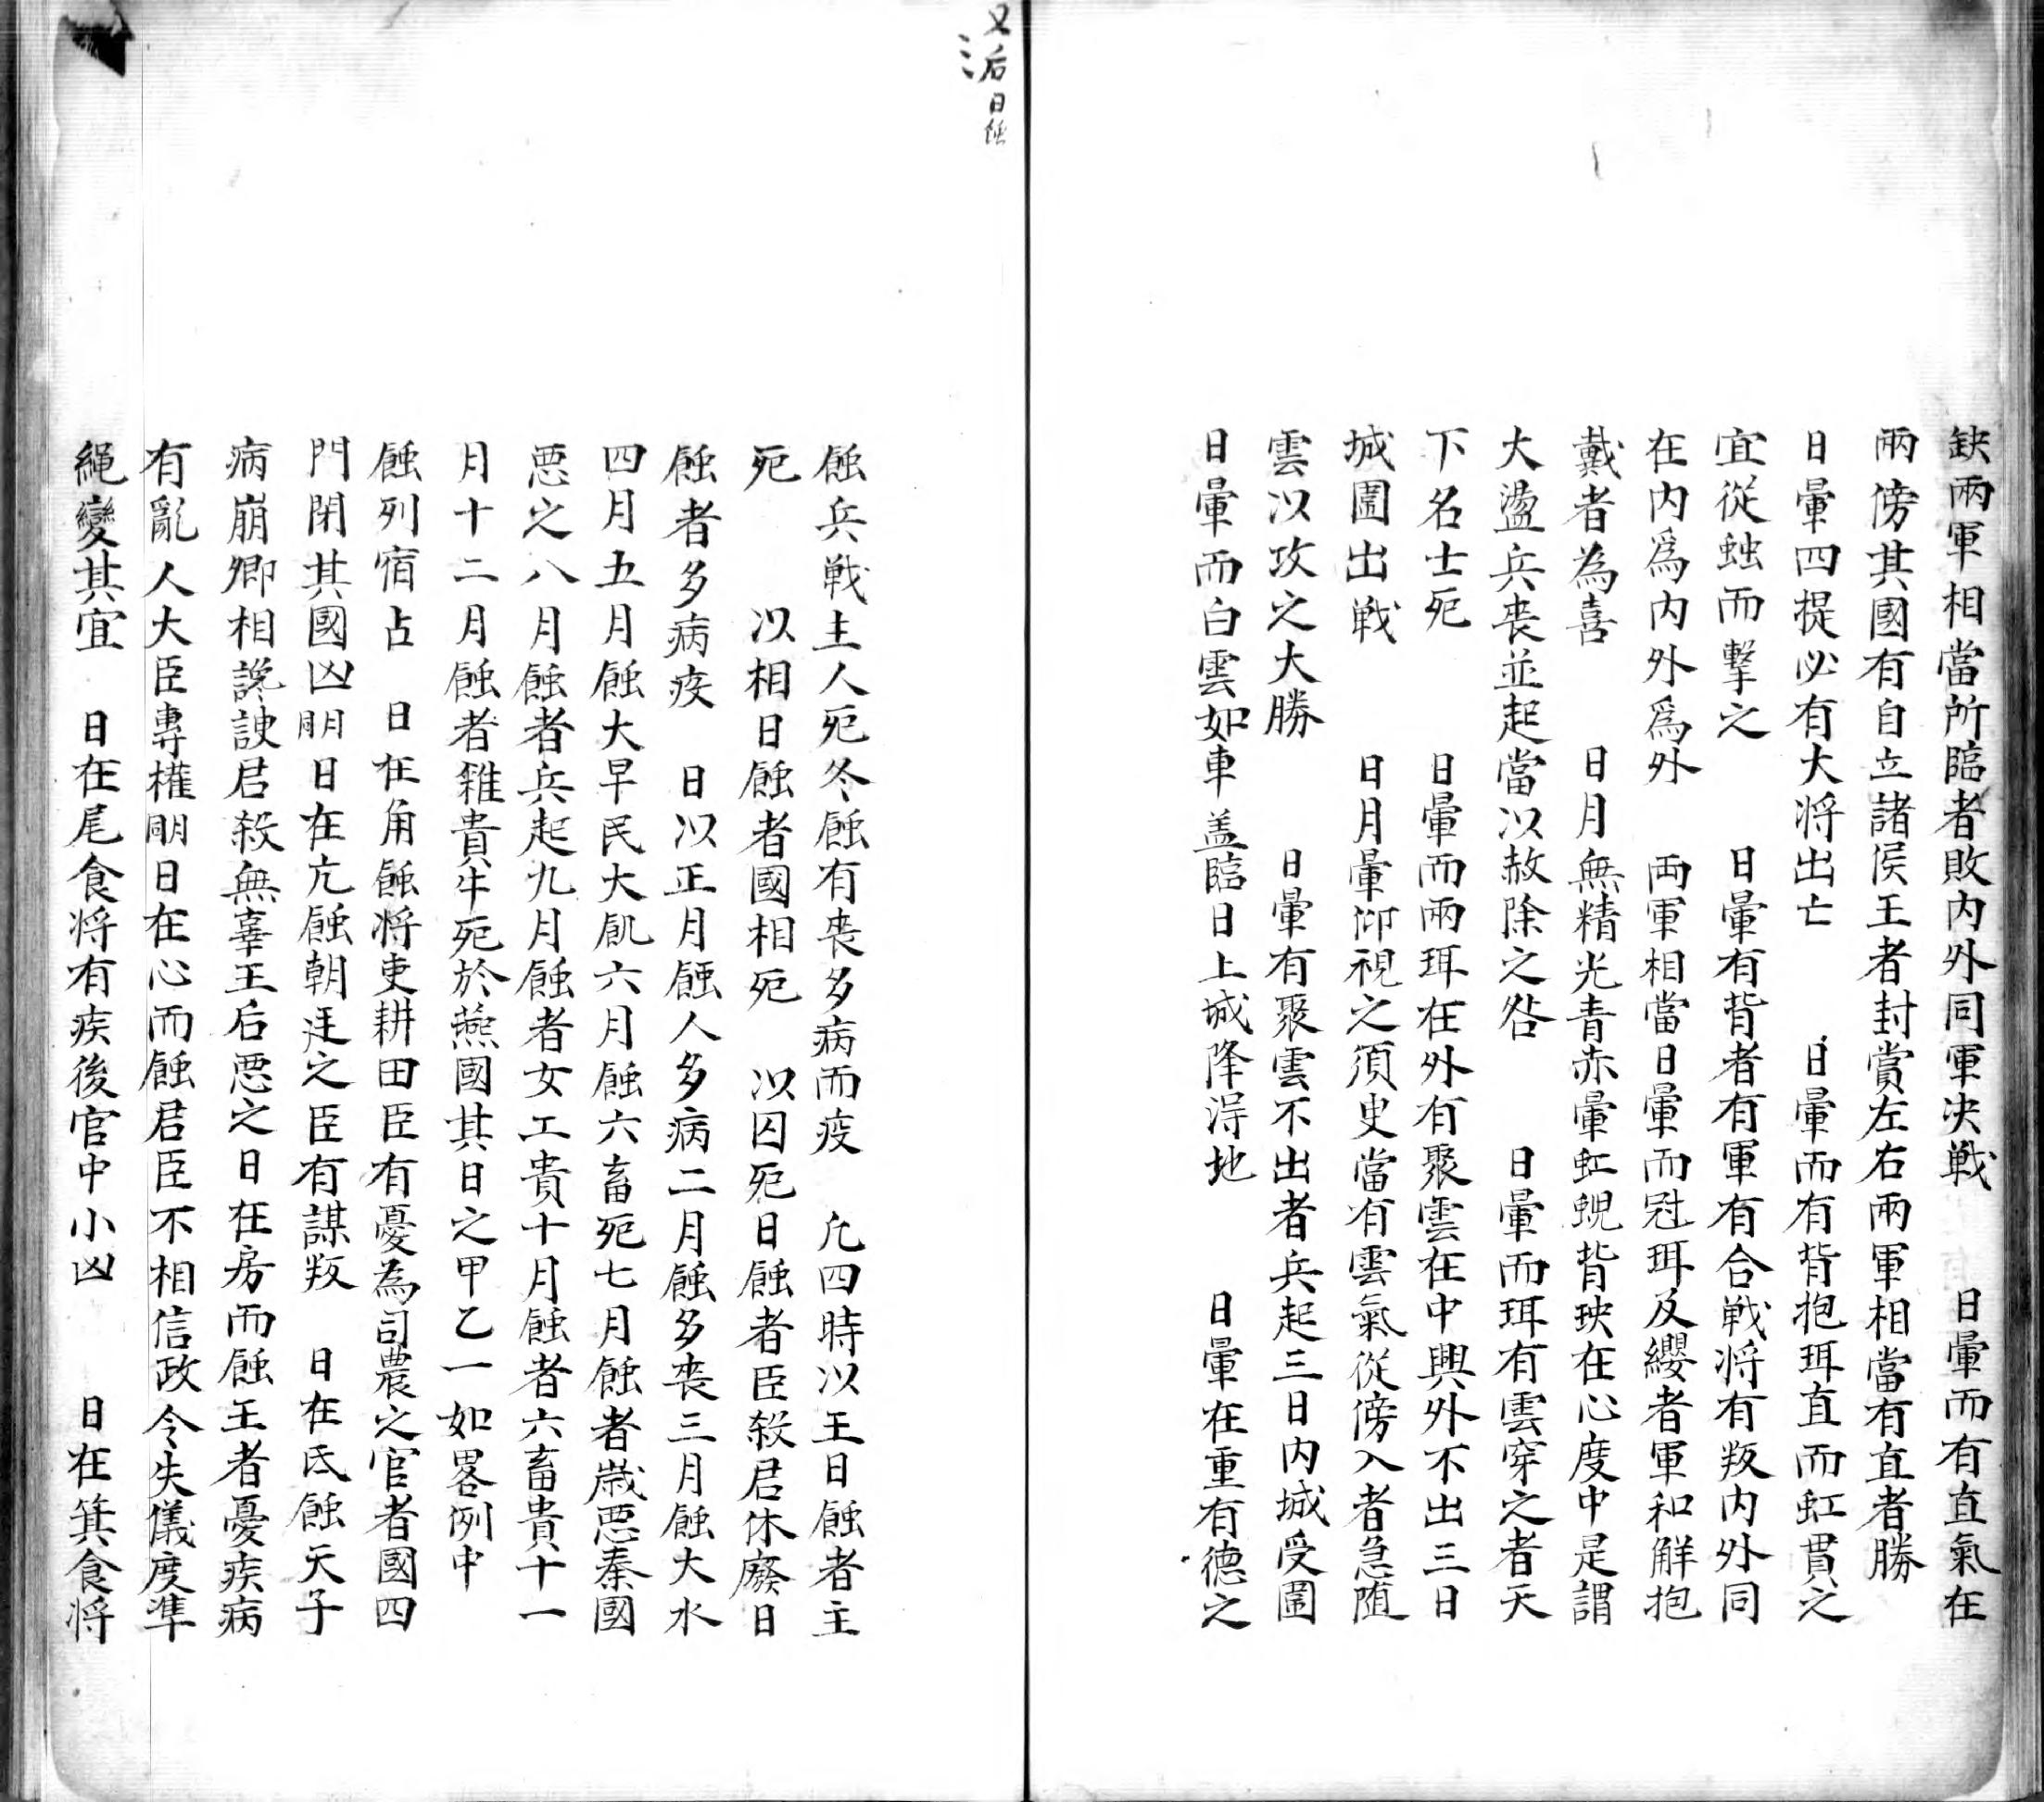 鈌兩軍相當所臨者敗内外同軍决戰　日暈而有直氣在
兩傍其國有自立諸侯王者封賞左右兩軍相當有直者勝
日暈四提必有大将出亡　日暈而有背抱珥直而虹貫之
宜從蝕而擊之　日暈有背者有軍有合戰将有叛内外同
在内爲内外爲外　两軍相當日暈而冠珥及纓者軍和解抱
戴者為喜　日月無精光青赤暈虹蜺背玦在心度中是謂
大盪兵丧並起當以赦除之咎　日暈而珥有雲穿之者天
下名士死　日暈而兩珥在外有聚雲在中與外不出三日
城圍出戰　日月暈仰視之須史當有雲氣從傍入者急随
雲以攻之大勝　日暈有聚雲不出者兵起三日内城受圍
日暈而白雲如車盖臨日上城降得地　日暈在重有德之
又后日蝕
蝕兵戰主人死冬蝕有丧多病而疫　凢四時以王日蝕者主
死　以相日蝕者國相死　以囚死日蝕者臣殺君休廢日
蝕者多病疫　日以正月蝕人多病二月蝕多丧三月蝕大水
四月五月蝕大旱民大飢六月蝕六畜死七月蝕者歳悪秦國
悪之八月蝕者兵起九月蝕者女工貴十月蝕者六畜貴十一
月十二月蝕者糴貴牛死於燕國其日之甲乙一如畧例中
蝕列宿占　日在角蝕将吏耕田臣有憂為司農之官者國四
門閉其國凶期日在亢蝕朝廷之臣有謀叛　日在氐蝕天子
病崩卿相讒諛君殺無辜王后悪之日在房而蝕王者憂疾病
有亂人大臣專權期日在心而蝕君臣不相信政令失儀度準
繩變其宜　日在尾食将有疾後官中小凶　日在箕食将